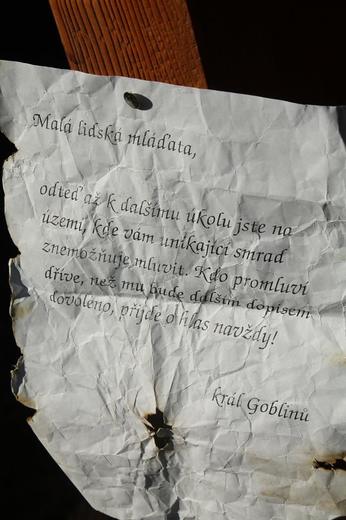 Malá lidská mláďata,
odteď až k dalšímu úkolu jste na
území, kde vám unikající smrad
znemožňuje mluvit. Kdo promluví
dříve, než mu bude dalším dopisem
dovoleno, přijde o hlas navždy!
král Goblinů